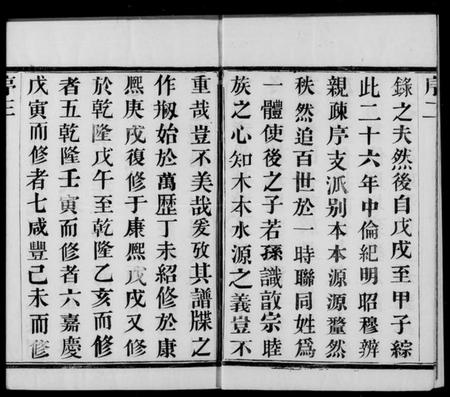 序二
錄之夫然後自戊戌至甲子綜
此二十六年中倫紀明昭穆辨
親疎序支派别本本源源釐然
秩然追百世於一時聯同姓爲
一體使後之子若孫識敦宗睦
族之心知木本水源之義豈不
重哉豈不美哉爰攷其譜牒之
作剏始於萬歴丁未紹修於康
熈庚戌復修于康熈戊戌又修
於乾隆戊午至乾隆乙亥而修
者五乾隆壬寅而修者六嘉慶
戊寅而修者七咸豐己未而修
序三